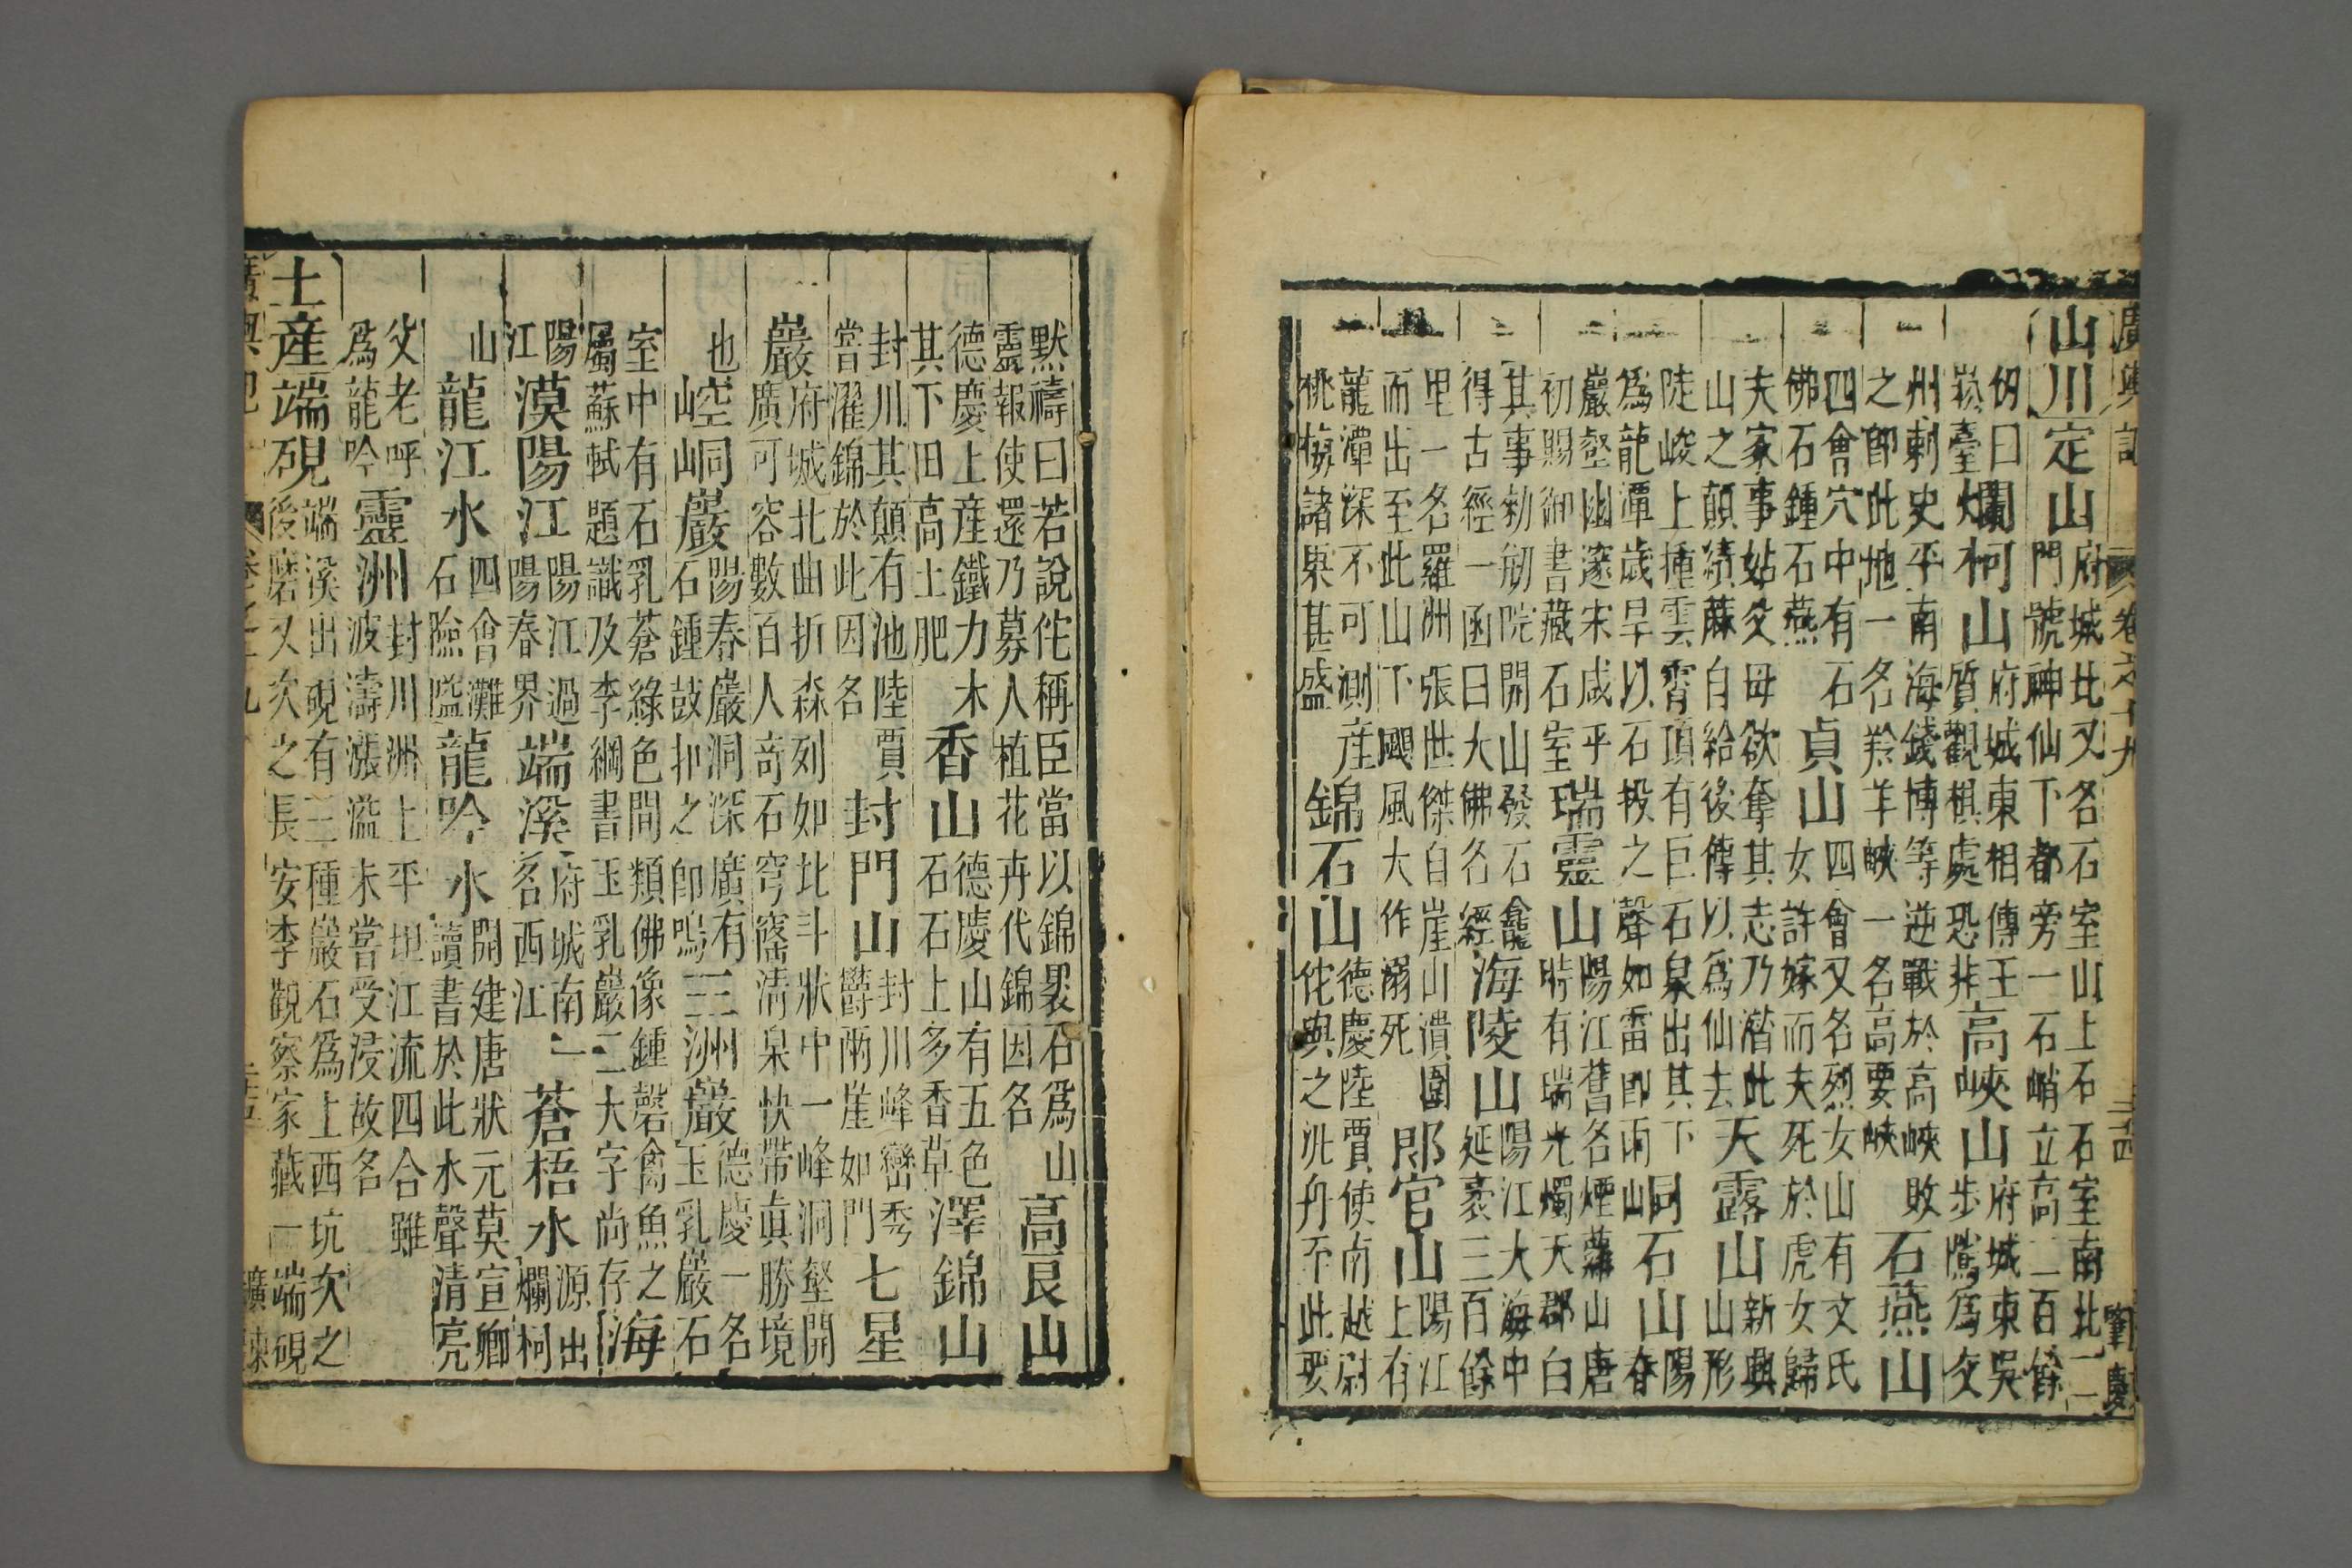 廣輿記 卷之十九 三十四 肇慶
山川 定山 府城北又名石室山上石石室南北二門號神仙下都旁一石峭立高二百餘
仭曰崧臺 爛柯山 府城東相傳王質觀棋處恐非 高峽山 府城東吳步隲爲交
州刺史平南海錢博等逆戰於高峽敗之卽此地一名羚羊峽一名高要峽 石燕山
四會穴中有石佛石鍾石石燕 貞山 四會又名烈女山有文氏女許嫁而夫死於虎女歸
夫家事姑父母欲奪其志乃潛此山之顛績蔴自給後傳以爲仙去 天露山 新興山形
陡峻上雲霄頂有巨石泉出其下爲龍潭歲旱以石投之聲如雷卽雨 峒石山 陽春
巖壑幽邃宋咸平初賜御書藏石室 瑞靈山 陽江舊名煙蘿山唐時有瑞光燭天郡白
其事勅剏院開山發石龕得古經一函曰大佛名經 海陵山 陽江大海中延袤三百餘
里一名羅洲張世傑自崖山潰圍而出至此山下颶風大作溺死 郎官山 陽江上有
龍潭深不可測産桃梅諸果甚盛 錦石山 德慶陸賈使南越尉佗與之泚舟至此要
默禱曰若說佗稱臣當以錦褁石爲山靈報使還乃募人植花卉代錦因名 高艮山
德慶上産鐵力木其下田高土肥 香山 德慶山有五色石石上多香草 澤錦山
封川其顛有池陸賈嘗濯錦於此因名 封門山 封川峰巒秀欝兩崖如門 七星
巖 府城北曲折森列如北斗狀中一峰洞壑開廣可容數百人奇石穹窿清泉快帶眞勝境
也 崆峒巖 陽春巖洞深廣有石鍾鼓扣之卽鳴 三洲巖 德慶一名玉乳巖石
室中有石乳蒼綠色間類佛像鍾磬禽魚之屬蘇軾題識及李綱書玉乳巖三大字尚存 海
陽江 漠陽江 陽江過陽春界 端溪 府城南一名西江 蒼梧水 源出爛柯
山 龍江水 四會灘石險隘 龍吟水 開建唐狀元莫宣卿讀書於此水聲清亮
父老呼爲龍吟 靈洲 封川洲上平坦江流四合雖波濤漲溢未嘗受浸故名
土産 端硯 端溪出硯有三種巖石爲上西坑次之後磨又次之長安李觀察家藏一端硯
廣輿記 卷之十九 三十五